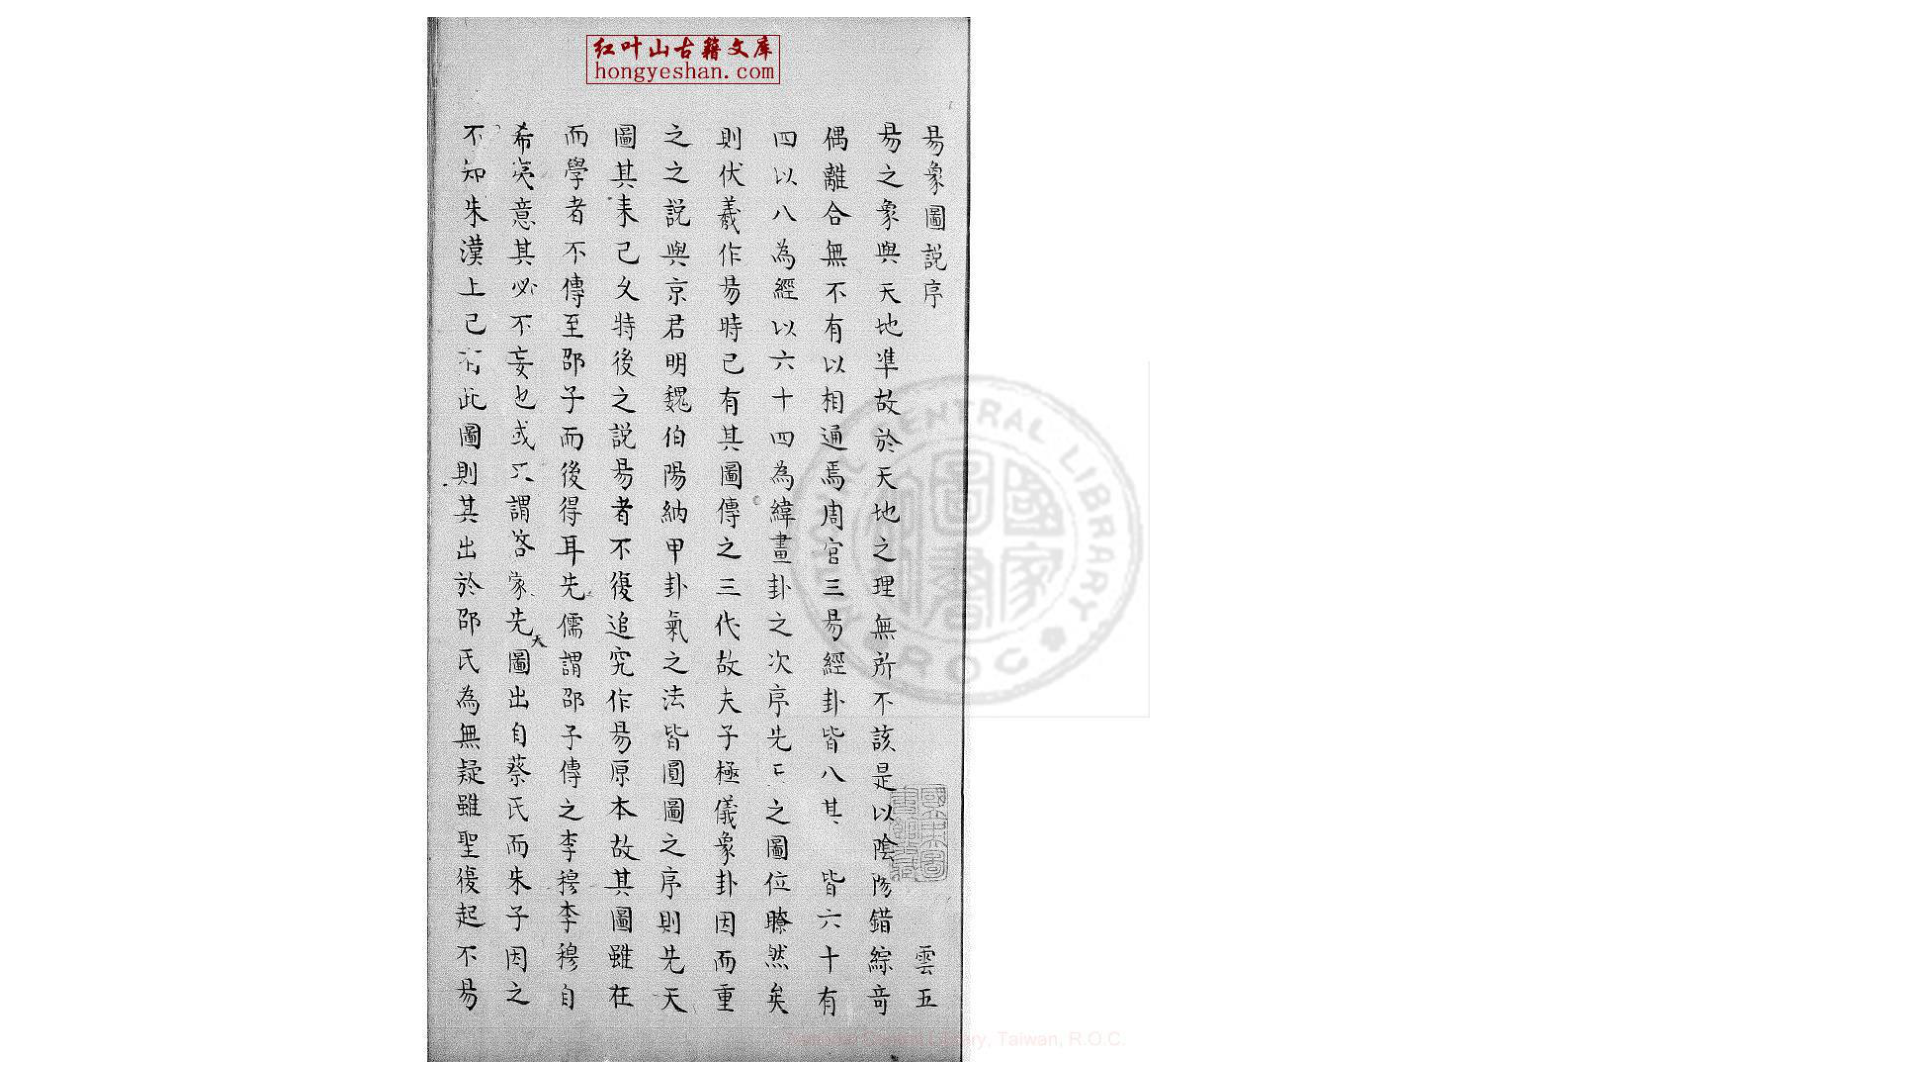 红叶山古籍文库
hongyeshan.com
易象圖説序
雲五
易之象與天地凖故於天地之理無所不該是以陰陽錯綜竒
偶離合無不有以相通焉周官三易經卦皆八其 皆六十有
四以八為經以六十四為緯畫卦之次序先 之圖位瞭然矣
則伏羲作易時已有其圖傳之三代故夫子極儀象卦因而重
之之説與京君明魏伯陽納甲卦氣之法皆圓圖之序則先天
圖其来已久特後之説易者不復追究作易原本故其圖雖在
而學者不傳至邵子而後得耳先儒謂邵子傳之李穆李穆自
希夷意其必不妄也或 謂 家先天圖出自蔡氏而朱子因之
不知朱漢上已有此圖則其出於邵氏為無疑雖聖復起不易
NATIONAL CENTRAL LIBRARY R.O.C.
國家圖書館
National Central Library, Taiwan, R.O.C.